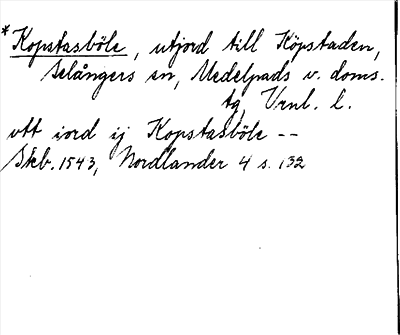 *Kopstasböle, utjord till Köpstaden,
Selångers sn, Medelpads v. doms.
tg, Vrnl. l.
vtt iord ij Kopstasböle --
Skb. 1543, Nordlander 4 s. 132